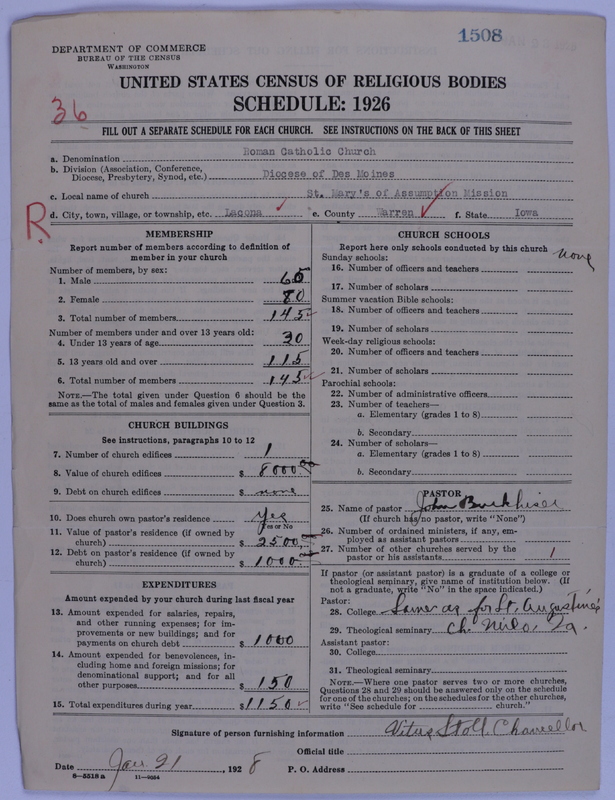 1508
DEPARTMENT OF COMMERCE
BUREAU OF THE CENSUS
WASHINGTON
UNITED STATES CENSUS OF RELIGIOUS BODIES
SCHEDULE: 1926
36
FILL OUT A SEPARATE SCHEDULE FOR EACH CHURCH. SEE INSTRUCTIONS ON THE BACK OF THIS SHEET
a. Denomination Roman Catholic Church
b. Division (Association, Conference,
Diocese, Presbytery, Synod, etc.) Diocese of Des Moines
c. Local name of church St. Mary's of Assumption Mission
R
d. City, town, village, or township, etc. Lacona e. County Warren f. State Iowa
MEMBERSHIP
Report number of members according to definition of
member in your church
Number of members, by sex:
1. Male 65
2. Female 80
3. Total number of members 145
Number of members under and over 13 years old:
4. Under 13 years of age 30
5. 13 years old and over 115
6. Total number of members 145
NOTE.—The total given under Question 6 should be
the same as the total of males and females given under Question 3.
CHURCH BUILDINGS
See instructions, paragraphs 10 to 12
7. Number of church edifices 1
8. Value of church edifices $ 8000.00
9. Debt on church edifices $ none
10. Does church own pastor's residence Yes
Yes or No
11. Value of pastor's residence (if owned by
church) $ 2500
12. Debt on pastor's residence (if owned by
church) $ 1000
EXPENDITURES
Amount expended by your church during last fiscal year
13. Amount expended for salaries, repairs,
and other running expenses; for im-
provements or new buildings; and for
payments on church debt $ 1000
14. Amount expended for benevolences, in-
cluding home and foreign missions; for
denominational support; and for all
other purposes $ 150
15. Total expenditures during year $ 1150
CHURCH SCHOOLS
Report here only schools conducted by this church
none
Sunday schools:
16. Number of officers and teachers
17. Number of scholars
Summer vacation Bible schools:
18. Number of officers and teachers
19. Number of scholars
Week-day religious schools:
20. Number of officers and teachers
21. Number of scholars
Parochial schools:
22. Number of administrative officers
23. Number of teachers—
a. Elementary (grades 1 to 8)
b. Secondary
24. Number of scholars—
a. Elementary (grades 1 to 8)
b. Secondary
PASTOR
25. Name of pastor John
(If church has no pastor, write "None")
26. Number of ordained ministers, if any, em-
ployed as assistant pastors
27. Number of other churches served by the
pastor or his assistants 1
If pastor (or assistant pastor) is a graduate of a college or
theological seminary, give name of institution below. (If
not a graduate, write "No" in the space indicated.)
Pastor:
28. College Same as for St. Augustine's
29. Theological seminary ch. Milo, Ia.
Assistant pastor:
30. College
31. Theological seminary
NOTE.—Where one pastor serves two or more churches,
Questions 28 and 29 should be answered only on the schedule
for one of the churches; on the schedules for the other churches,
write "See schedule for church."
Signature of person furnishing information Vitus Stoll, Chancellor
Official title
Date Jan 21, 1928 P. O. Address
8—5518 a 11—9034